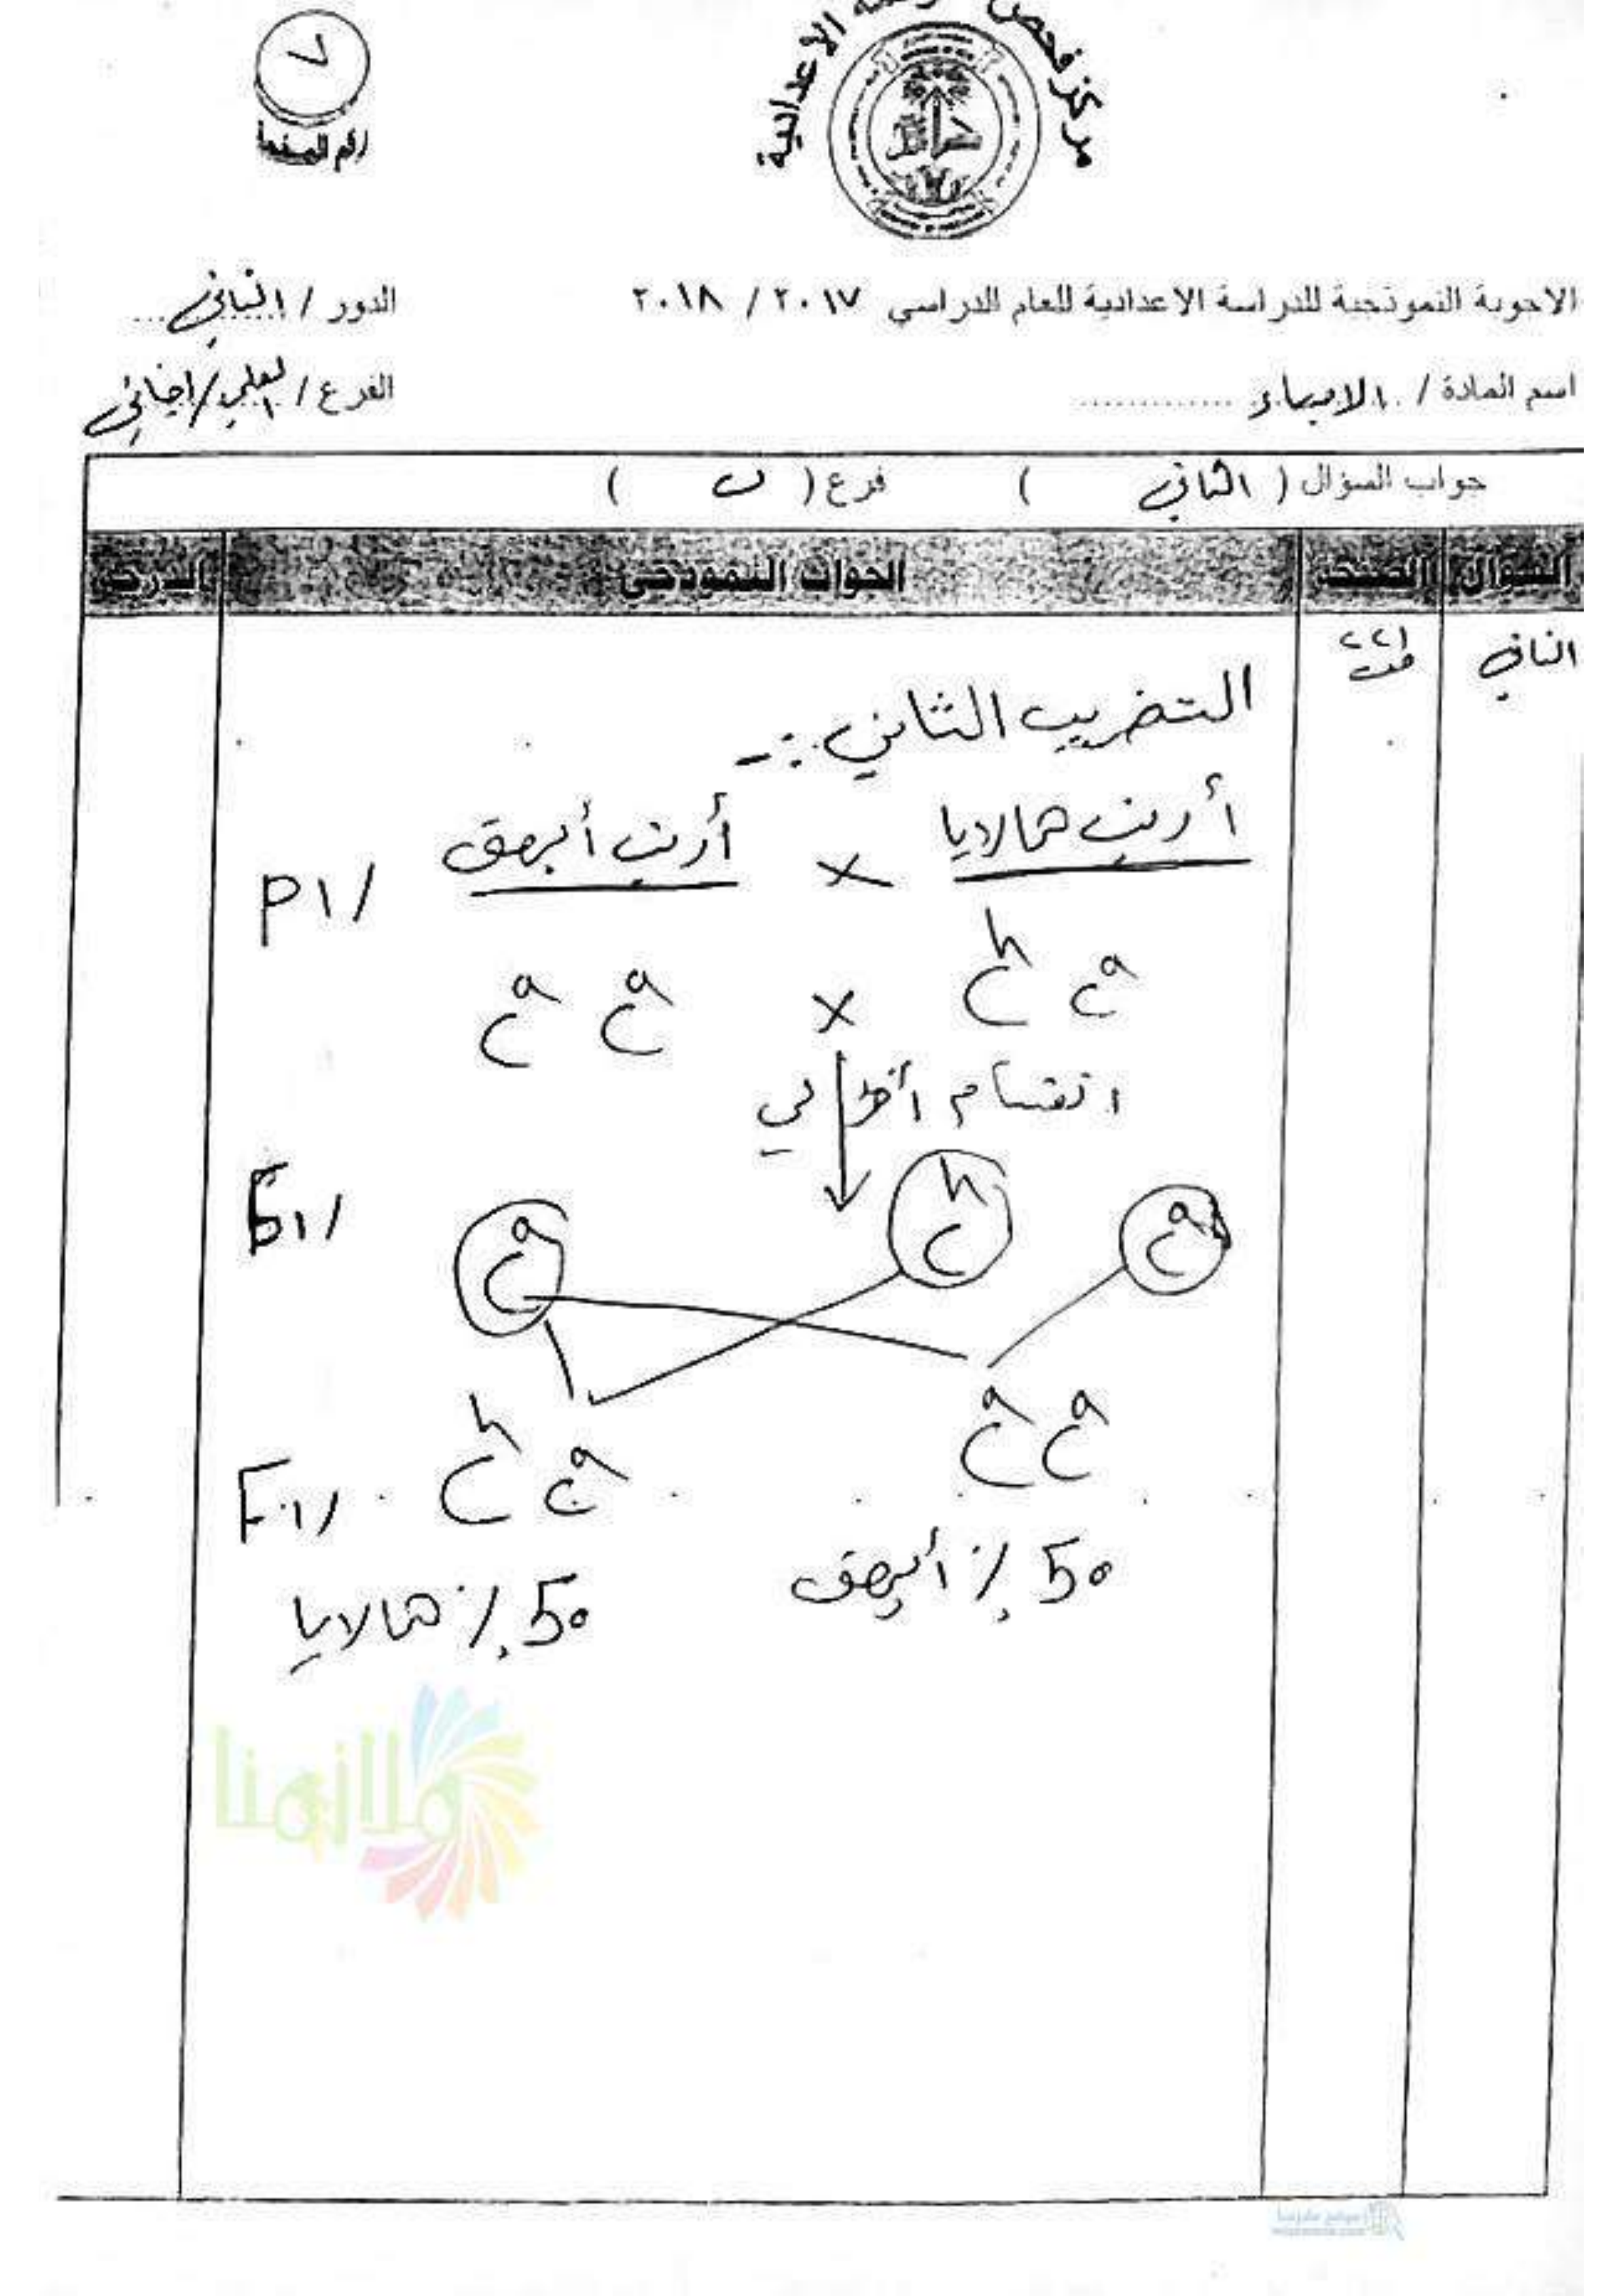 ٧
رقم الصفحة
مركز فحص الدراسة الاعدادية
العراق
الاجوبة النموذجية للدراسة الاعدادية للعام الدراسي ٢٠١٧ / ٢٠١٨
الدور / الثاني
اسم المادة / الاحياء
الفرع / العلمي / احيائي
جواب السؤال ( الثاني ) فرع ( ب )
السؤال الصفحة الجواب النموذجي الدرجة
الثاني ٢٢١
التضريب الثاني :-
P1/ أرنب هملايا × أرنب أبهق
Cʰ Cᵃ × Cᵃ Cᵃ
انقسام أختزالي
G1/ Cᵃ Cʰ Cᵃ
F1/ Cʰ Cᵃ Cᵃ Cᵃ
50 ٪ أبهق
50 ٪ هملايا
ملازمنا
موقع ملازمنا